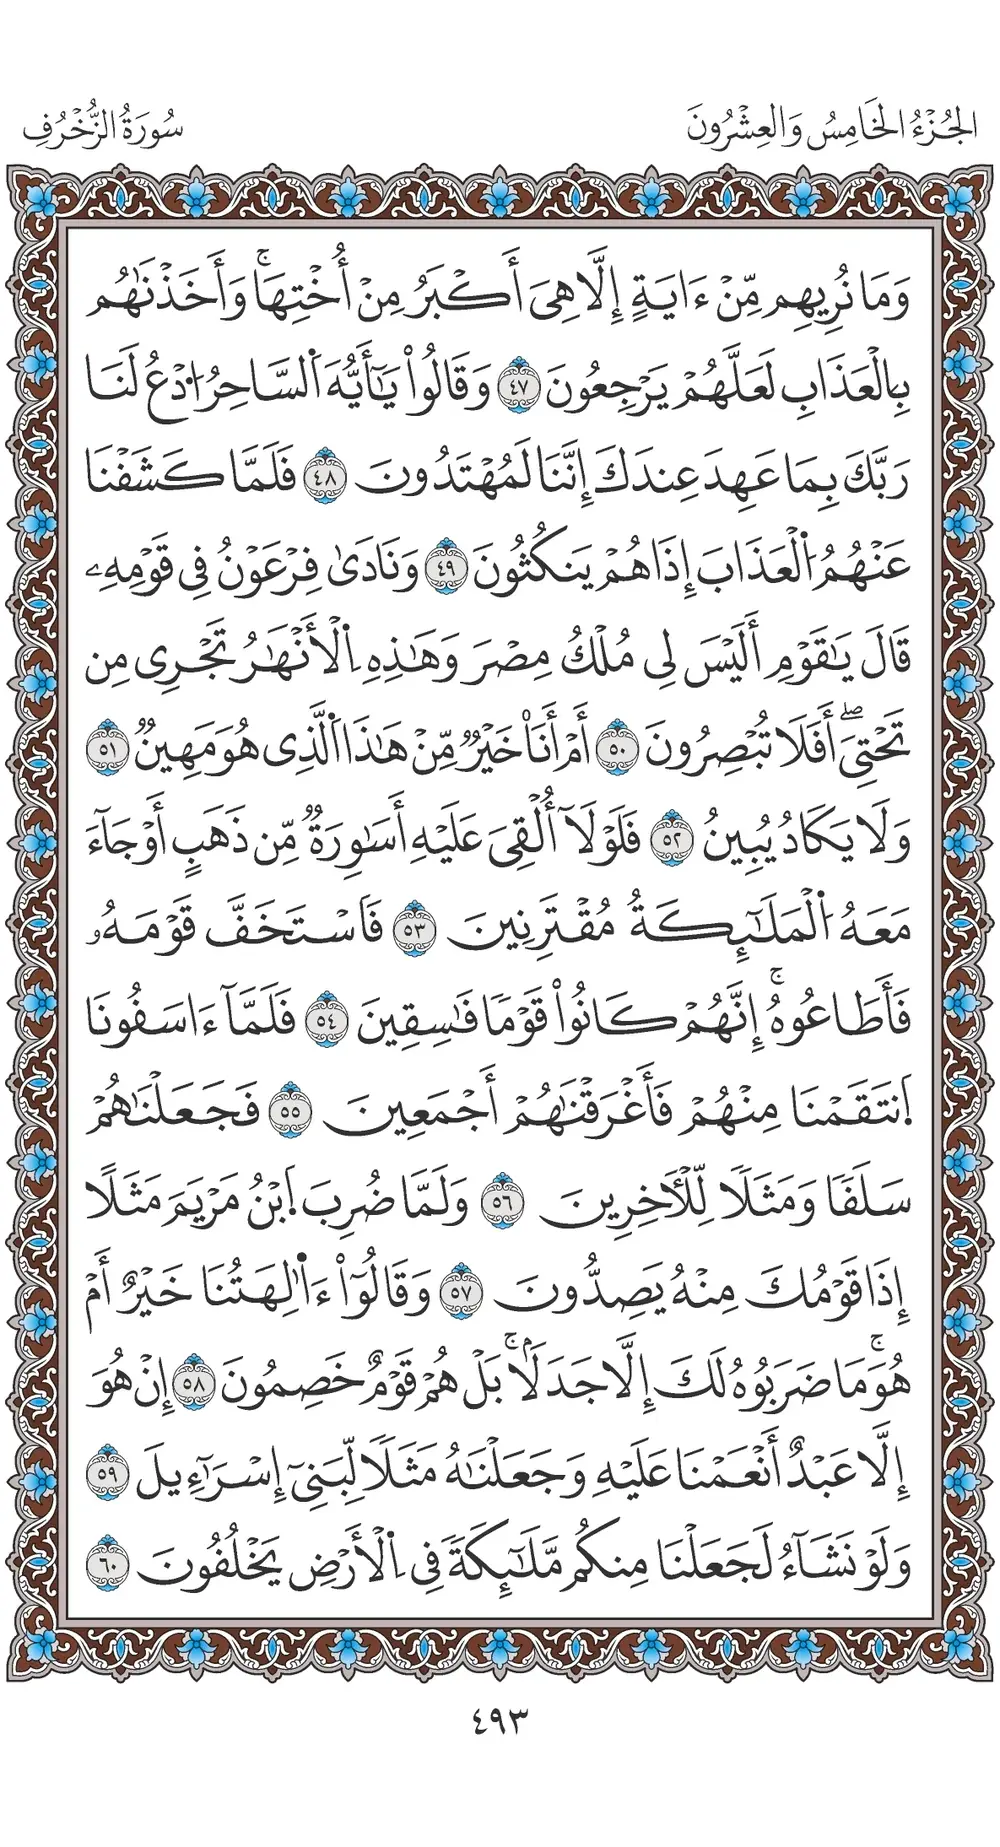 الجُزْءُ الخَامِسُ وَالعِشْرُونَ
سُورَةُ الزُّخْرُفِ
وَمَا نُرِيهِم مِّنْ ءَايَةٍ إِلَّا هِيَ أَكْبَرُ مِنْ أُخْتِهَاۚ وَأَخَذْنَٰهُم
بِالْعَذَابِ لَعَلَّهُمْ يَرْجِعُونَ ٤٧ وَقَالُواْ يَٰٓأَيُّهَ اَ۬لسَّاحِرُ اُ۟دْعُ لَنَا
رَبَّكَ بِمَا عَهِدَ عِندَكَ إِنَّنَا لَمُهْتَدُونَ ٤٨ فَلَمَّا كَشَفْنَا
عَنْهُمُ اُ۬لْعَذَابَ إِذَا هُمْ يَنكُثُونَ ٤٩ وَنَادَىٰ فِرْعَوْنُ فِي قَوْمِهِۦ
قَالَ يَٰقَوْمِ أَلَيْسَ لِي مُلْكُ مِصْرَ وَهَٰذِهِ اِ۬لْأَنْهَٰرُ تَجْرِي مِن
تَحْتِيَۖ أَفَلَا تُبْصِرُونَ ٥٠ أَمْ أَنَا۠ خَيْرٌ مِّنْ هَٰذَا اَ۬لَّذِي هُوَ مَهِينٌ ٥١
وَلَا يَكَادُ يُبِينُ ٥٢ فَلَوْلَآ أُلْقِيَ عَلَيْهِ أَسَٰوِرَةٌ مِّن ذَهَبٍ أَوْ جَآءَ
مَعَهُ اُ۬لْمَلَٰٓئِكَةُ مُقْتَرِنِينَ ٥٣ فَاسْتَخَفَّ قَوْمَهُۥ
فَأَطَاعُوهُۚ إِنَّهُمْ كَانُواْ قَوْمًا فَٰسِقِينَ ٥٤ فَلَمَّآ ءَاسَفُونَا
اَ۪نتَقَمْنَا مِنْهُمْ فَأَغْرَقْنَٰهُمْ أَجْمَعِينَ ٥٥ فَجَعَلْنَٰهُمْ
سَلَفًا وَمَثَلًا لِّلْأٓخِرِينَ ٥٦ وَلَمَّا ضُرِبَ اَ۪بْنُ مَرْيَمَ مَثَلًا
إِذَا قَوْمُكَ مِنْهُ يَصِدُّونَ ٥٧ وَقَالُوٓاْ ءَاَٰ۬لِهَتُنَا خَيْرٌ أَمْ
هُوَۚ مَا ضَرَبُوهُ لَكَ إِلَّا جَدَلَۢاۚ بَلْ هُمْ قَوْمٌ خَصِمُونَ ٥٨ إِنْ هُوَ
إِلَّا عَبْدٌ أَنْعَمْنَا عَلَيْهِ وَجَعَلْنَٰهُ مَثَلًا لِّبَنِيٓ إِسْرَٰٓءِيلَ ٥٩
وَلَوْ نَشَآءُ لَجَعَلْنَا مِنكُم مَّلَٰٓئِكَةً فِي اِ۬لْأَرْضِ يَخْلُفُونَ ٦٠
٤٩٣